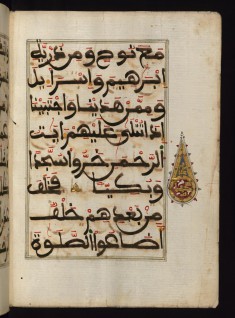 مع نوح ومن ذرية
ابرهيم واسرايل
وممن هدينا واجتبينا
اذا تتلى عليهم ايت
الرحمن خروا سجدا
وبكيا فخلف
من بعدهم خلف
اضاعوا الصلوة